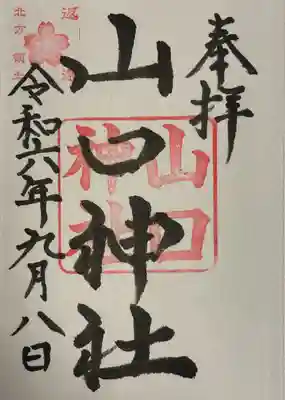 奉拝
山口神社
令和六年九月八日
山口
神社